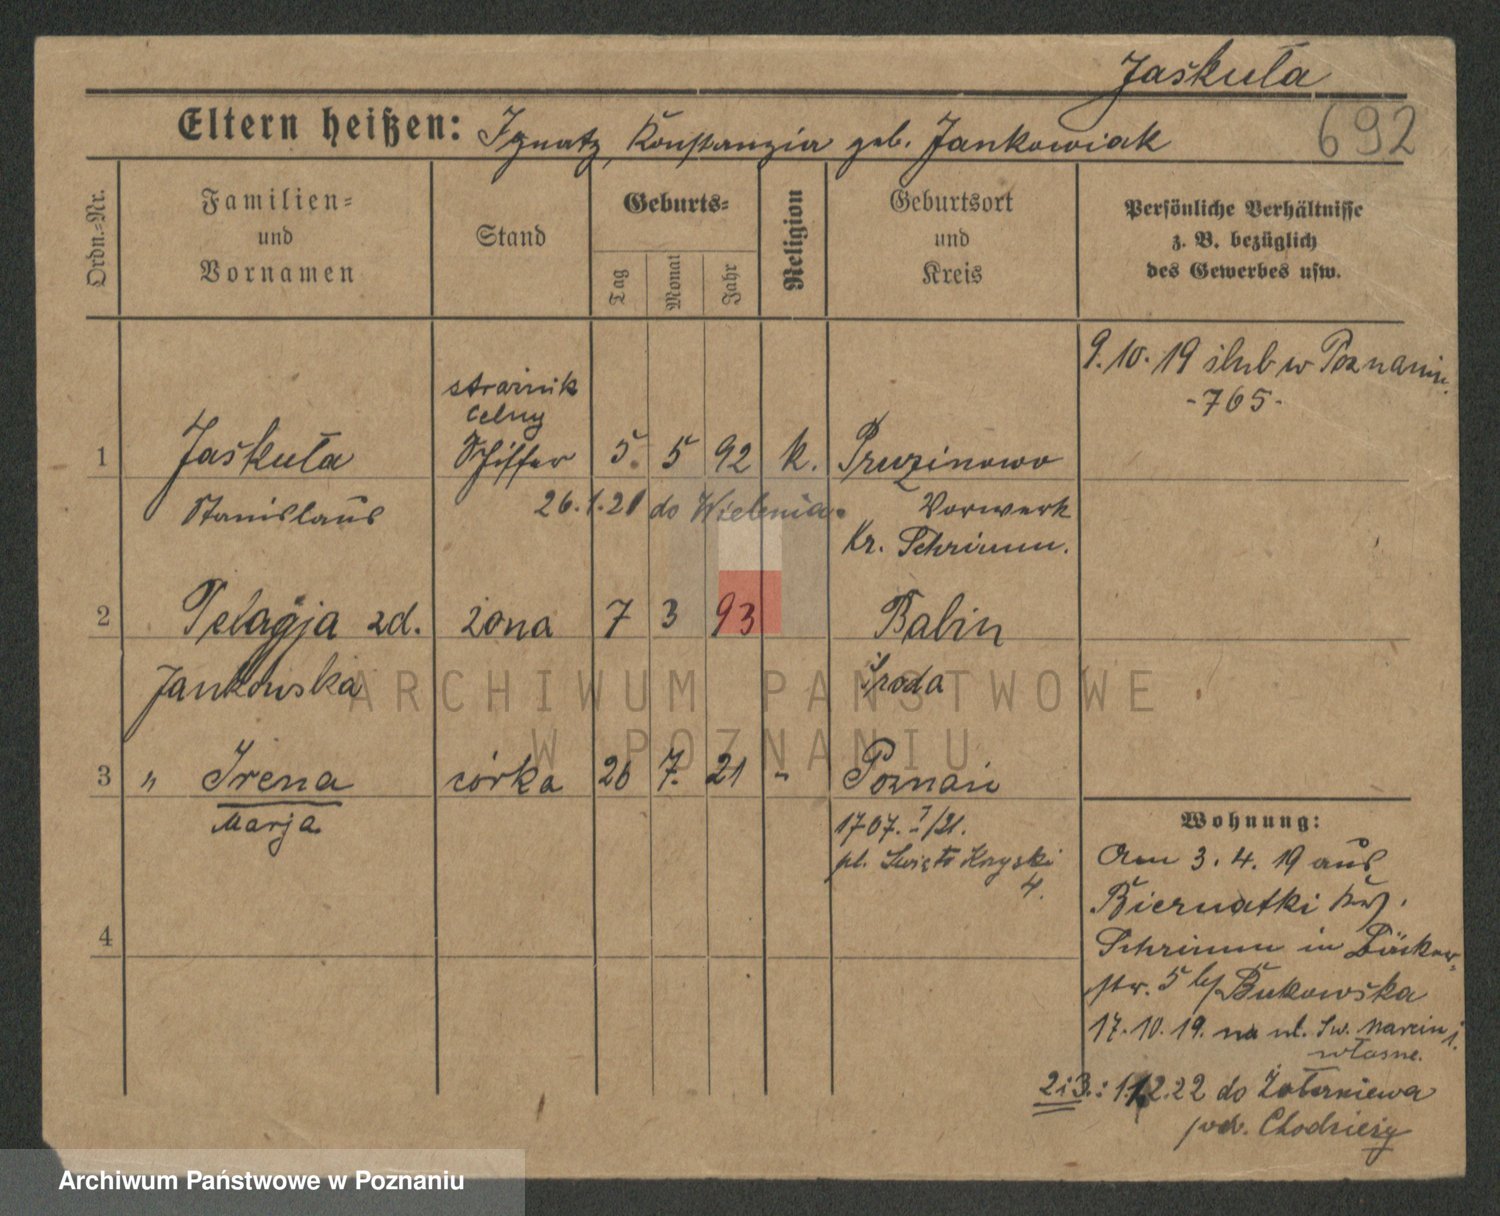 Jaskuła
692
Eltern heißen: Ignatz, Konstanzia geb. Jankowiak
Ordn.-Nr.
Familien-
und
Vornamen
Stand
Geburts-
Tag
Monat
Jahr
Religion
Geburtsort
und
Kreis
Persönliche Verhältnisse
z. B. bezüglich
des Gewerbes usw.
9.10.19 ślub w Poznaniu
-765-
strażnik
celny
1 Jaskuła Schiffer 5. 5 92 k. Pruzinowo
Stanislaus 26.1.21 do Wielenia. Vorwerk
Kr. Schrimm.
2 Pelagja zd. żona 7 3 93 Babin
Jankowska Środa
3 " Irena córka 26 7. 21 - Poznań
Marja
1707. I/21.
pl. Święto Krzyski
4.
4
Wohnung:
Am 3.4.19 aus
Biernatki Krs.
Schrimm in Bäcker-
str. 5 b/ Bukowska
17.10.19. na ul. Św. Marcin 1.
własne.
2 i 3.: 1.12.22 do
pow. Chodzież
ARCHIWUM PAŃSTWOWE
W POZNANIU
Archiwum Państwowe w Poznaniu